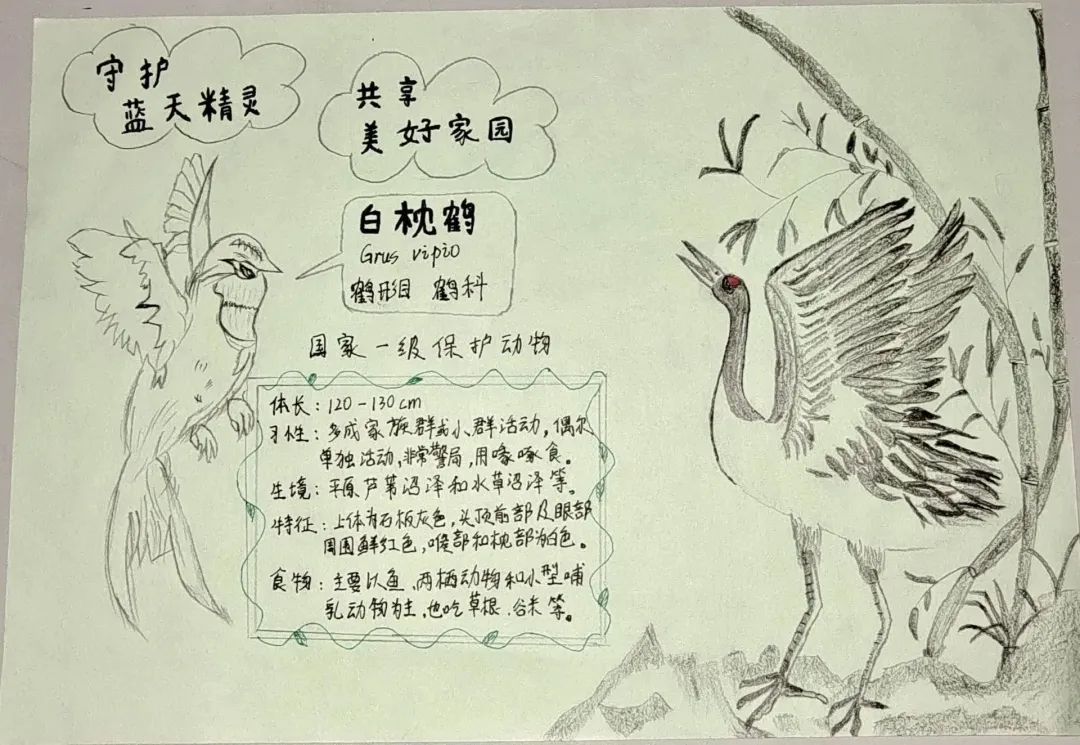 守护
蓝天精灵
共享
美好家园
白枕鹤
Grus vipio
鹤形目 鹤科
国家一级保护动物
体长：120-130cm
习性：多成家族群或小群活动，偶尔
单独活动，非常警局，用喙啄食。
生境：平原芦苇沼泽和水草沼泽等。
特征：上体为石板灰色，头顶前部及眼部
周围鲜红色，喉部和枕部为白色。
食物：主要以鱼、两栖动物和小型哺
乳动物为主，也吃草根、谷米等。